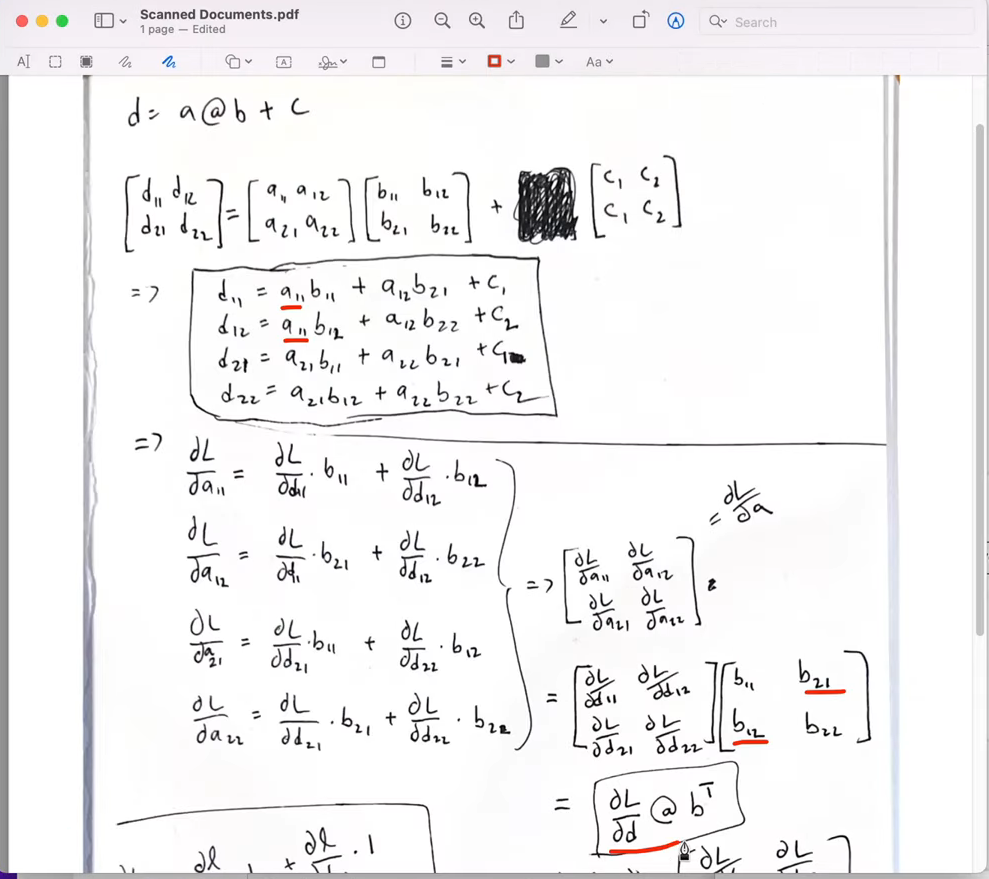 Scanned Documents.pdf
1 page — Edited
Search
Aa
d = a @ b + c
[d11 d12; d21 d22] = [a11 a12; a21 a22] [b11 b12; b21 b22] + [c1 c2; c1 c2]
=> d11 = a11b11 + a12b21 + c1
d12 = a11b12 + a12b22 + c2
d21 = a21b11 + a22b21 + c1
d22 = a21b12 + a22b22 + c2
=> ∂L/∂a11 = ∂L/∂d11 · b11 + ∂L/∂d12 · b12
∂L/∂a12 = ∂L/∂d1 · b21 + ∂L/∂d12 · b22
∂L/∂a21 = ∂L/∂d21 · b11 + ∂L/∂d22 · b12
∂L/∂a22 = ∂L/∂d21 · b21 + ∂L/∂d22 · b22
= ∂L/∂a
=> [∂L/∂a11 ∂L/∂a12; ∂L/∂a21 ∂L/∂a22]
= [∂L/∂d11 ∂L/∂d12; ∂L/∂d21 ∂L/∂d22] [b11 b21; b12 b22]
= ∂L/∂d @ bᵀ
∂L + ∂L · 1
∂L ∂L